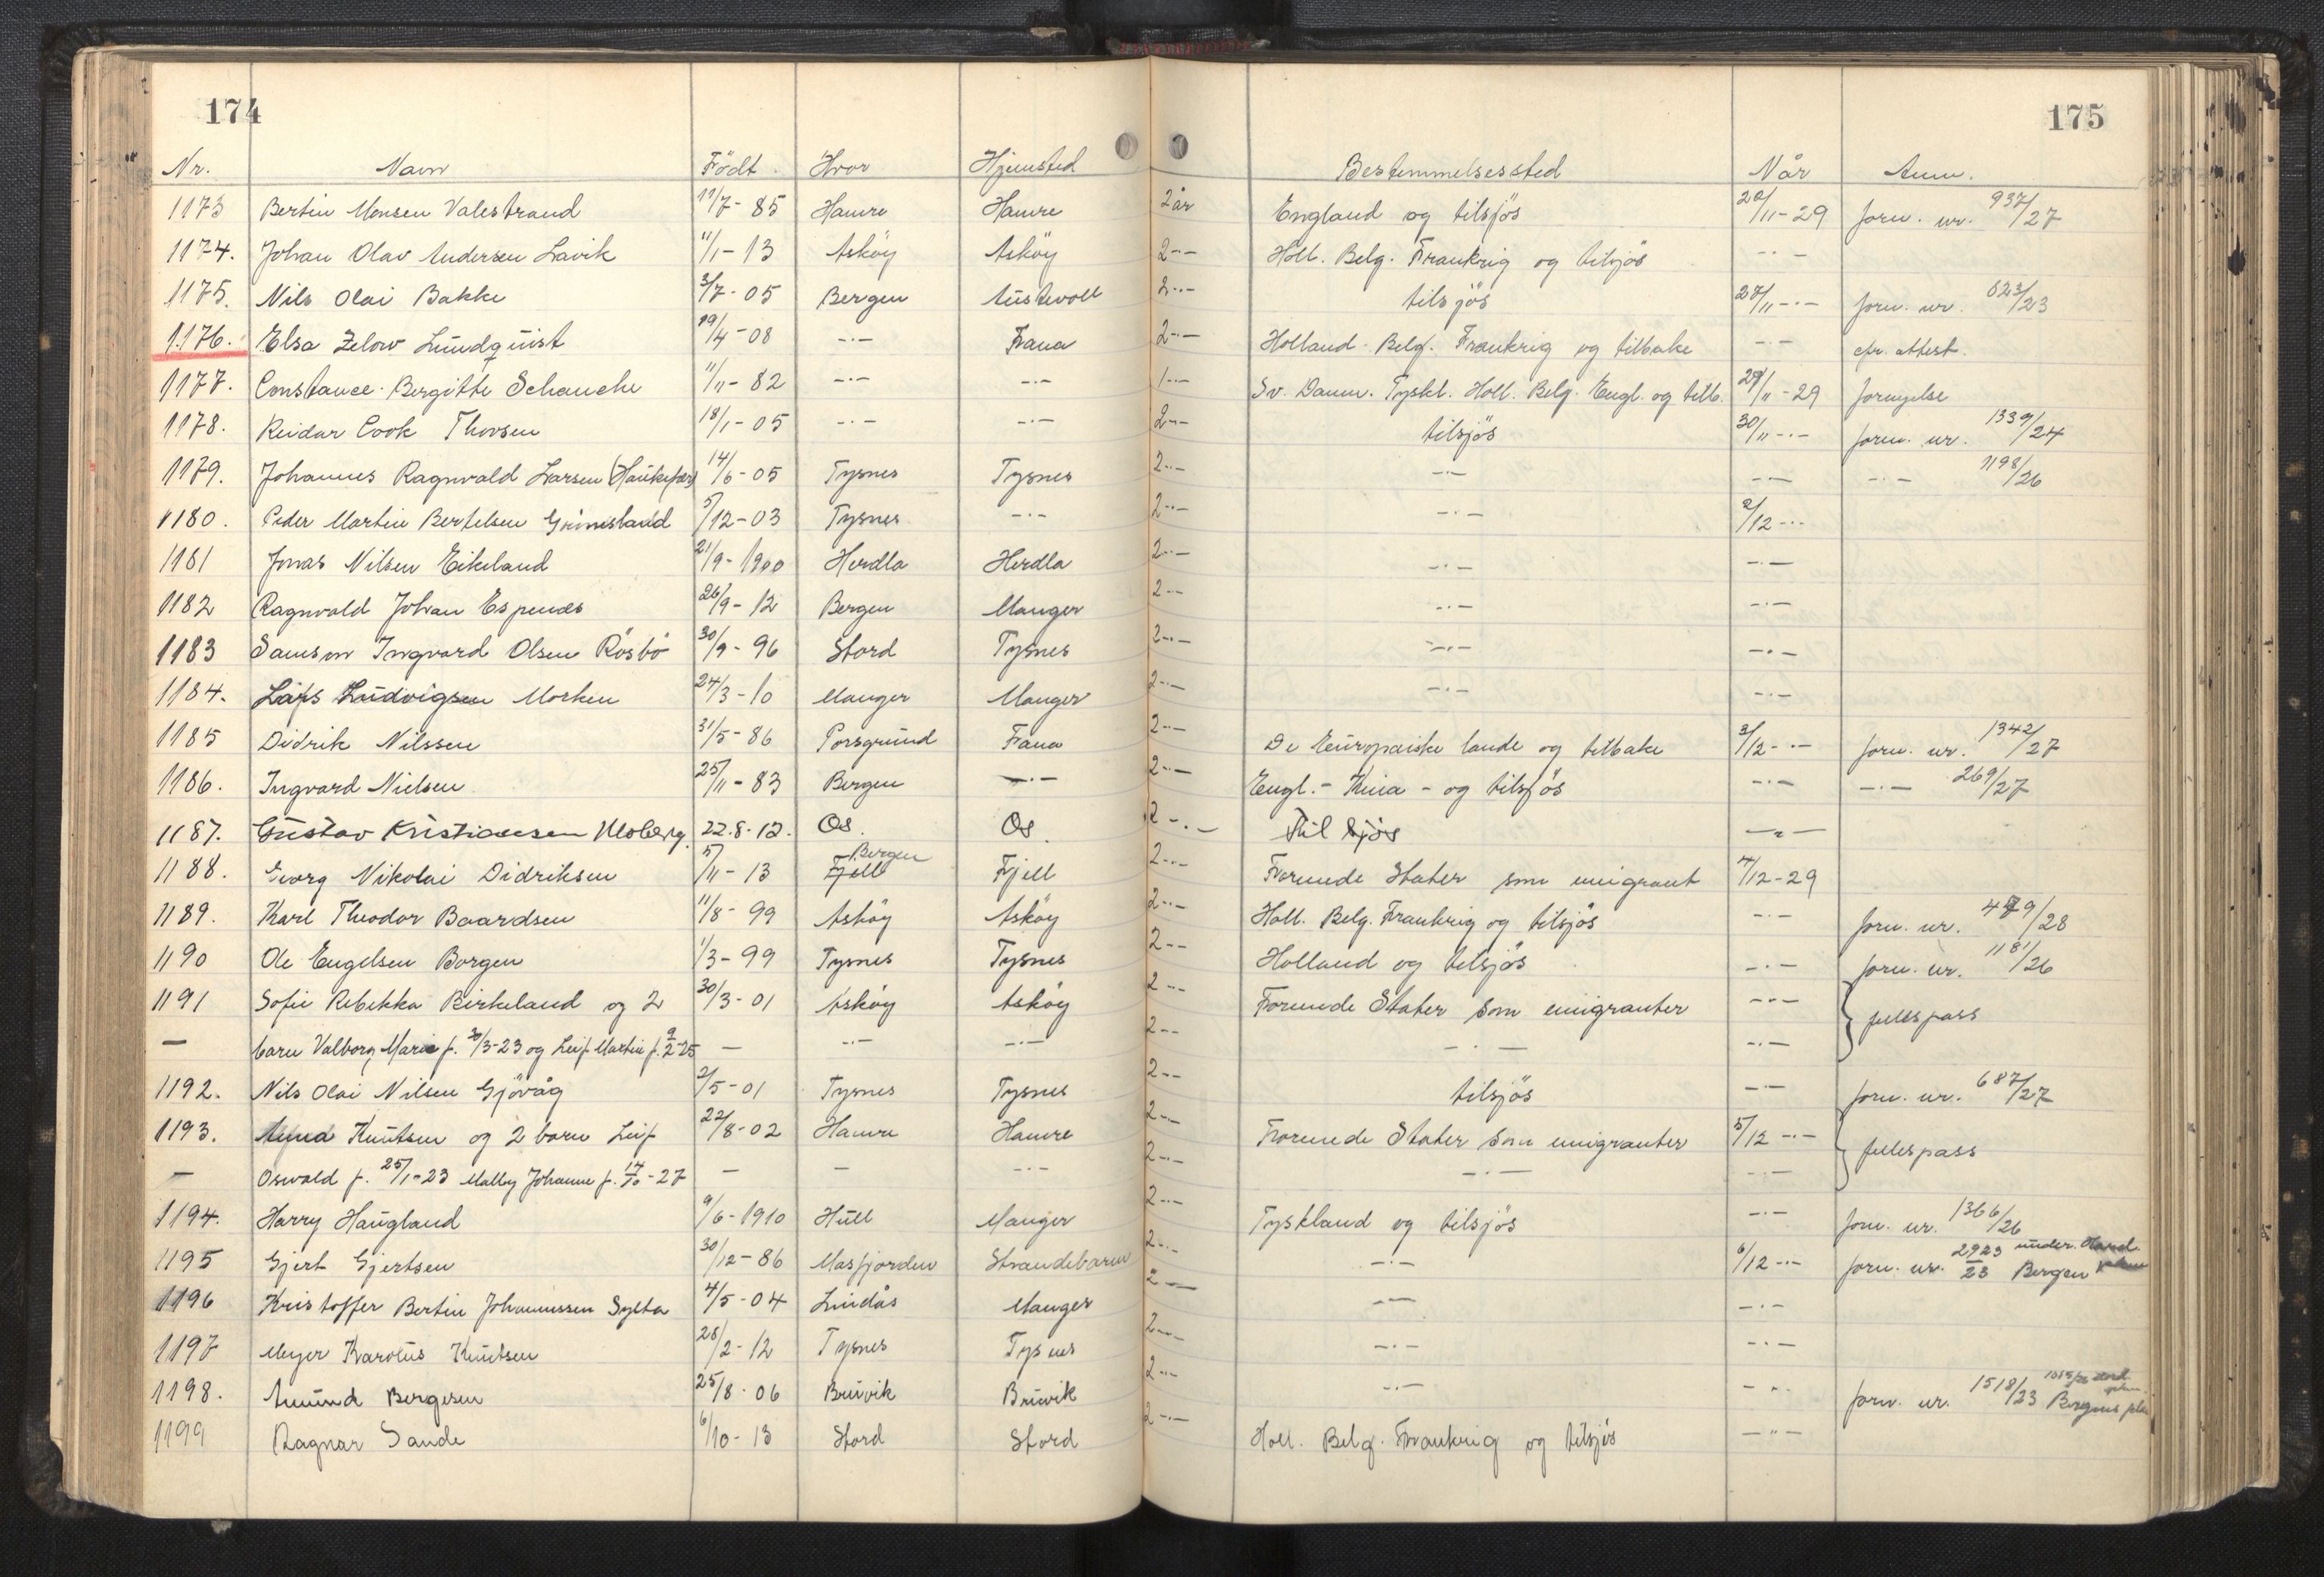 174
175
Nr. Navn Födt. Hvor Hjemsted Bestemmelsessted Når Anm.
1173 Bertin Monsen Valestrand 17/7-85 Hamre Hamre 2 år England og tilsjös 20/11-29 forn. nr. 937/27
1174. Johan Olav Andersen Lavik 11/1-13 Asköy Asköy 2-"- Holl. Belg. Frankrig og tilsjös -"-
1175. Nils Olai Bakke 3/7-05 Bergen Austevoll 2-"- tilsjös 27/11-"- forn. nr. 623/23
1176. Elsa Zelow Lundquist 19/4-08 -"- Fana 2-"- Holland. Belg. Frankrig og tilbake -"- cfr. attest.
1177. Constance Bergitte Schanche 11/11-82 -"- -"- 1-"- Sv. Danm. Tyskl. Holl. Belg. Engl. og tilb. 29/11-29 fornyelse
1178. Reidar Cook Thorsen 18/1-05 -"- -"- 2-"- tilsjös 30/11-"- forn. nr. 1339/24
1179. Johannes Ragnvald Larsen 14/6-05 Tysnes Tysnes 2-"- -"- -"- -"- 1198/26
1180. Peder Martin Bertelsen Grimstand 5/12-03 Tysnes -"- 2-"- -"- 2/12-"-
1181 Jonas Nilsen Eikeland 21/9-1900 Herdla Herdla 2-"- -"- -"-
1182 Ragnvald Johan Espenes 26/9-12 Bergen Manger 2-"- -"- -"-
1183 Samson Ingvard Olsen Rösbö 30/9-96 Stord Tysnes 2-"- -"- -"-
1184. Lars Ludvigsen Morken 24/3-10 Manger Manger 2-"- -"- -"-
1185 Didrik Nilssen 31/5-86 Porsgrund Fana 2-"- De Europaiske lande og tilbake 3/12-"- forn. nr. 1342/27
1186. Ingvard Nielsen 25/11-83 Bergen -"- 2-"- Engl. - Kina - og tilsjös -"- -"- 269/27
1187. Gustav Kristiansen Moberg. 22.8-12. Os. Os. 2-"- Til sjös -"-
1188. Georg Nikolai Didriksen 5/11-13 Fjell Bergen Fjell 2-"- Forende Stater som emigrant 4/12-29
1189. Karl Theodor Baardsen 11/8-99 Asköy Asköy 2-"- Holl. Belg. Frankrig og tilsjös -"- forn. nr. 479/28
1190 Ole Engelsen Borgen 1/3-99 Tysnes Tysnes 2-"- Holland og tilsjös -"- forn. nr. 1181/26
1191 Sofie Rebekka Birkeland og 2 30/3-01 Asköy Asköy 2-"- Forende Stater som emigranter -"- fellespass
— barn Valborg Marie f. 30/3-23 og Leif Martin f. 9/2-25 — -"- -"- 2-"- -"- -"-
1192. Nils Olai Nilsen Gjövåg 2/5-01 Tysnes Tysnes 2-"- tilsjös -"- forn. nr. 687/27
1193. Knutsen og 2 barn Leif 22/8-02 Hamre Hamre 2-"- Forenede Stater som emigranter 5/12-"- fellespass
— Oswald f. 25/1-23 Mally Johanne f. 14/10-27 — — -"- 2-"- -"- -"-
1194. Harry Haugland 9/6-1910 Hull Manger 2-"- Tyskland og tilsjös -"- forn. nr. 1366/26
1195 Gjert Gjertsen 30/12-86 Masfjorden Strandebarm 2-"- -"- 6/12-"- forn. nr. 2923/23 Bergen
1196 Kristoffer Bertin Johannessen Sylta 4/5-04 Lindås Manger 2-"- -"- -"-
1197 Meyer Karolus Knutsen 28/2-12 Tysnes Tysnes 2-"- -"- -"-
1198. Amund Bergesen 25/8-06 Bruvik Bruvik 2-"- -"- -"- forn. nr. 1518/23 Bergens
1199 Ragnar Sande 6/10-13 Stord Stord 2-"- Holl. Belg. Frankrig og tilsjös -"-